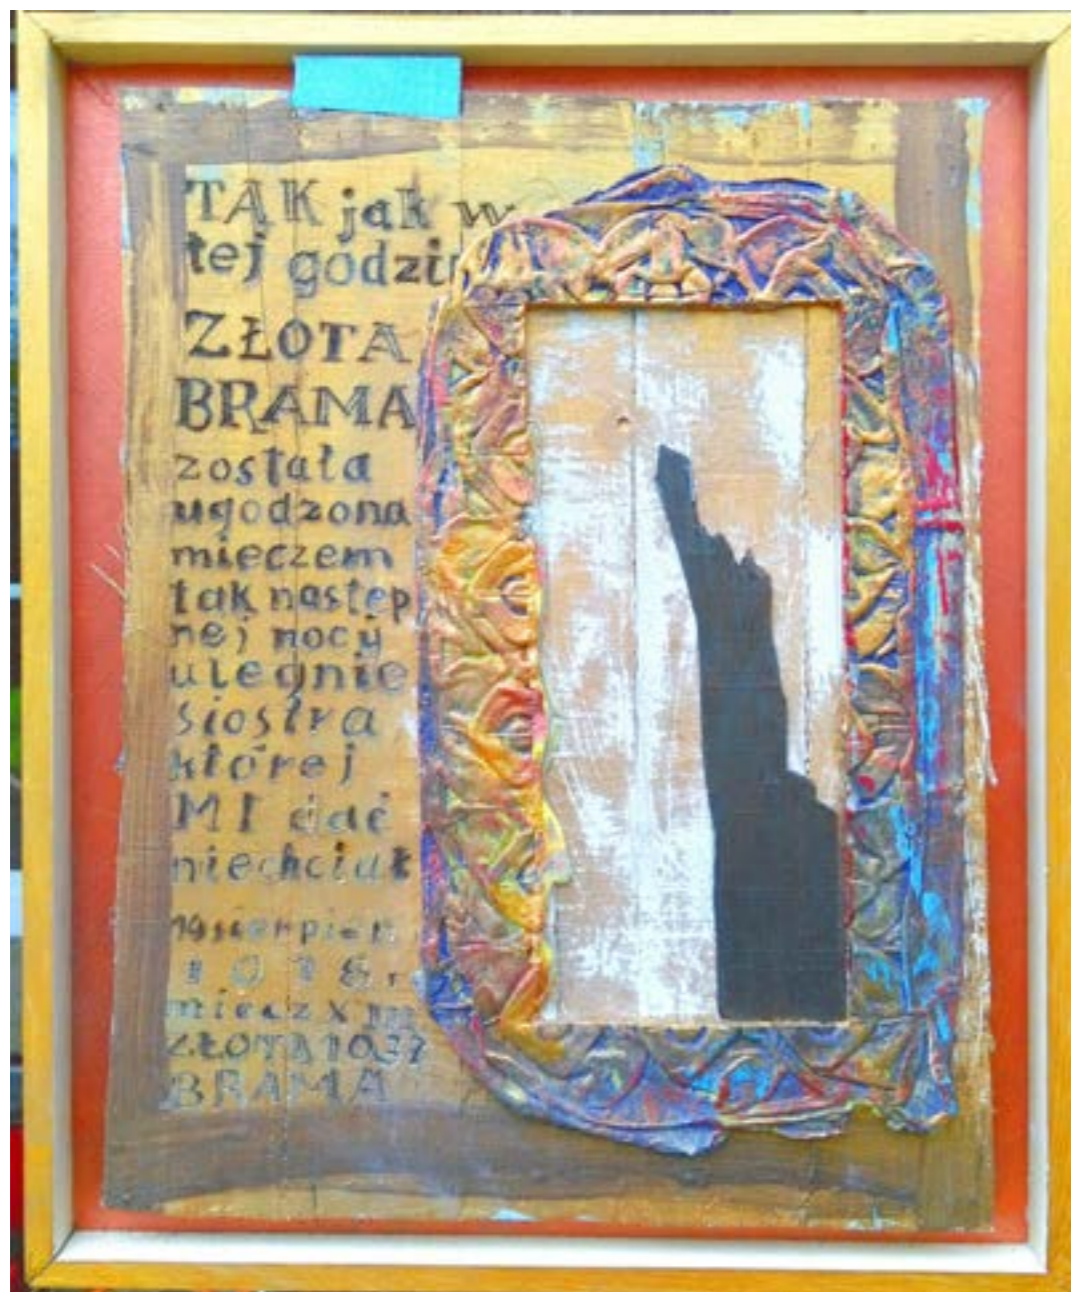 TAK jak w
tej godzi
ZŁOTA
BRAMA
została
ugodzona
mieczem
tak następ
nej nocy
ulegnie
siostra
której
MI dać
niechciał
sierpień
miecz X
ZŁOTA 1037
BRAMA